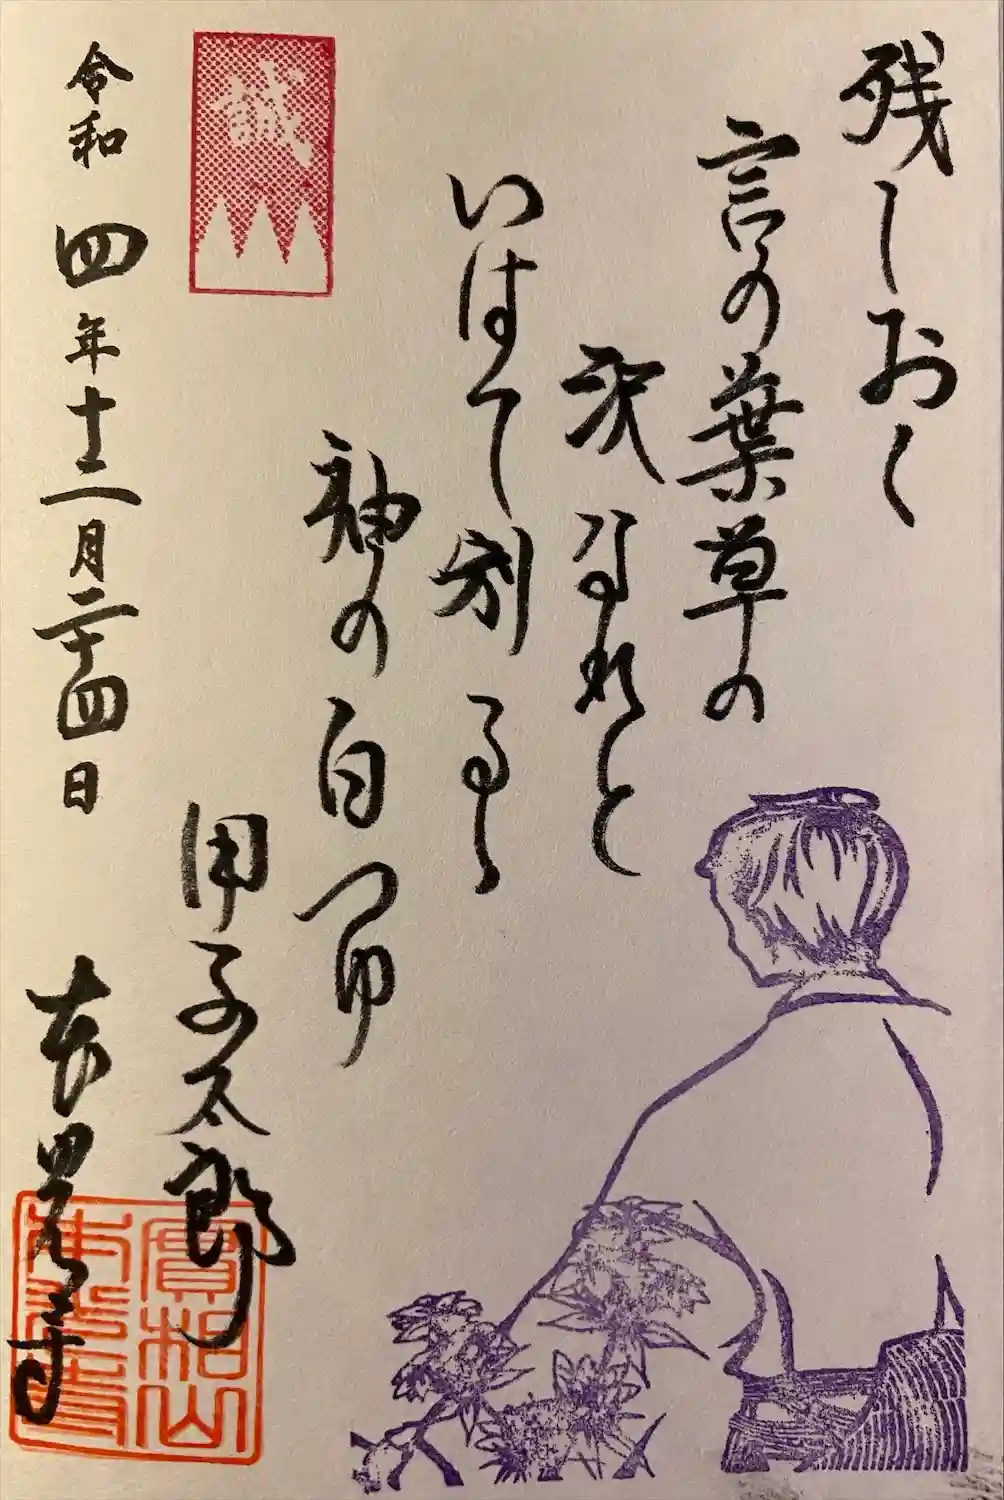 残しおく
言の葉草の
沢なれと
いはて別るゝ
袖の白つゆ
甲子太郎
誠
令和四年十二月二十四日
本光寺
實相山
本光寺